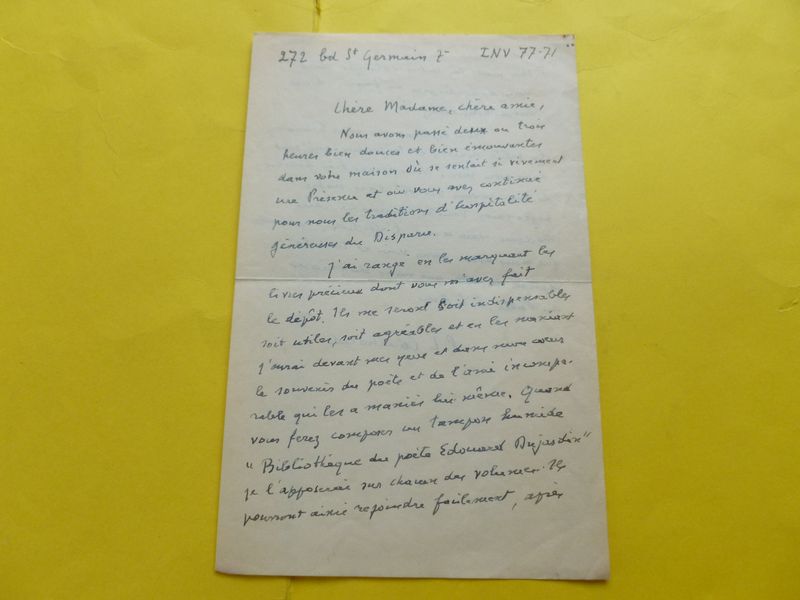 272 bd St Germain 7e INV 77-71
Chère Madame, chère amie,
Nous avons passé deux ou trois
heures bien douces et bien émouvantes
dans votre maison où se sentait si vivement
une Présence et où vous avez continué
pour nous les traditions d'hospitalité
généreuse du Disparu.
J'ai rangé en les marquant les
livres précieux dont vous m'avez fait
le dépôt. Ils me seront soit indispensables
soit utiles, soit agréables et en les maniant
j'aurai devant mes yeux et dans mon cœur
le souvenir du poète et de l'ami incompa-
rable qui les a maniés lui même. Quand
vous ferez composer un tampon humide
"Bibliothèque du poète Edouard Dujardin"
je l'apposerai sur chacun des volumes. Ils
pourront ainsi rejoindre facilement, après